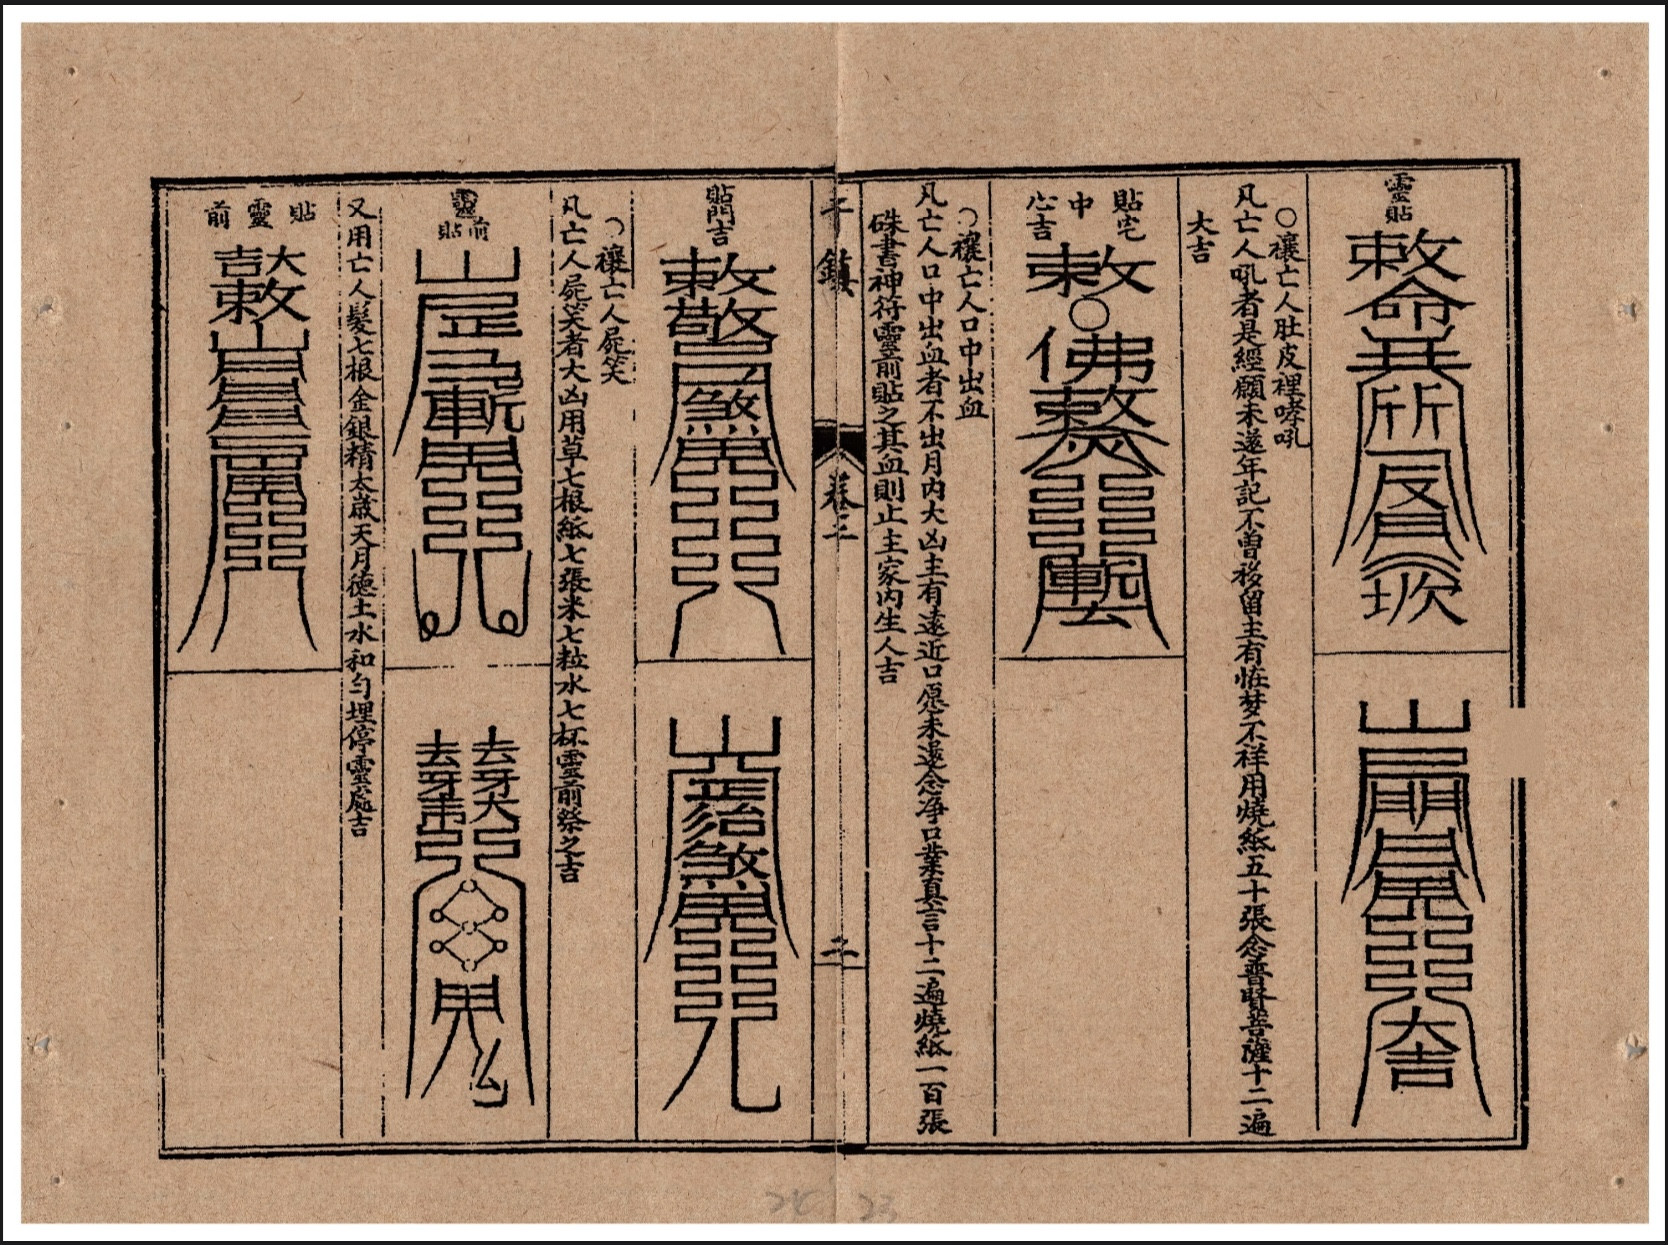 靈貼
敕命
大吉
○禳亡人肚皮裡哮吼
凡亡人吼者是經願未遂年記不曾移留主有怪梦不祥用燒紙五十張念普賢菩薩十二遍
大吉
貼宅
中
心吉
敕
佛
○禳亡人口中出血
凡亡人口中出血者不出月内大凶主有遠近口愿未遂念净口業真言十二遍燒紙一百張
硃書神符靈前貼之其血則止主家内生人吉
鎮
卷三
二
貼門吉
敕
煞
煞
○禳亡人屍笑
凡亡人屍笑者大凶用草七根紙七張米七粒水七杯靈前祭之吉
靈前
貼
斬
去去
鬼
又用亡人髮七根金銀精太歲天月德土水和匀埋停靈處吉
貼
靈
前
敕